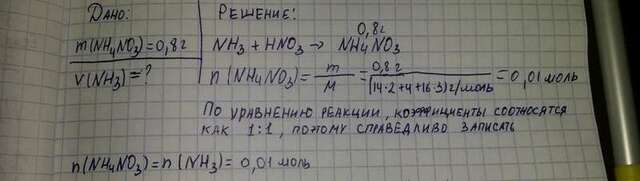 Дано:
m(NH4NO3)=0,8г
V(NH3)=?
Решение:
0,8г
NH3 + HNO3 → NH4NO3
n(NH4NO3)= m/M = 0,8г/(14·2+4+16·3)г/моль = 0,01 моль
По уравнению реакции, коэффициенты соотносятся
как 1:1, поэтому справедливо записать
n(NH4NO3)=n(NH3)= 0,01 моль